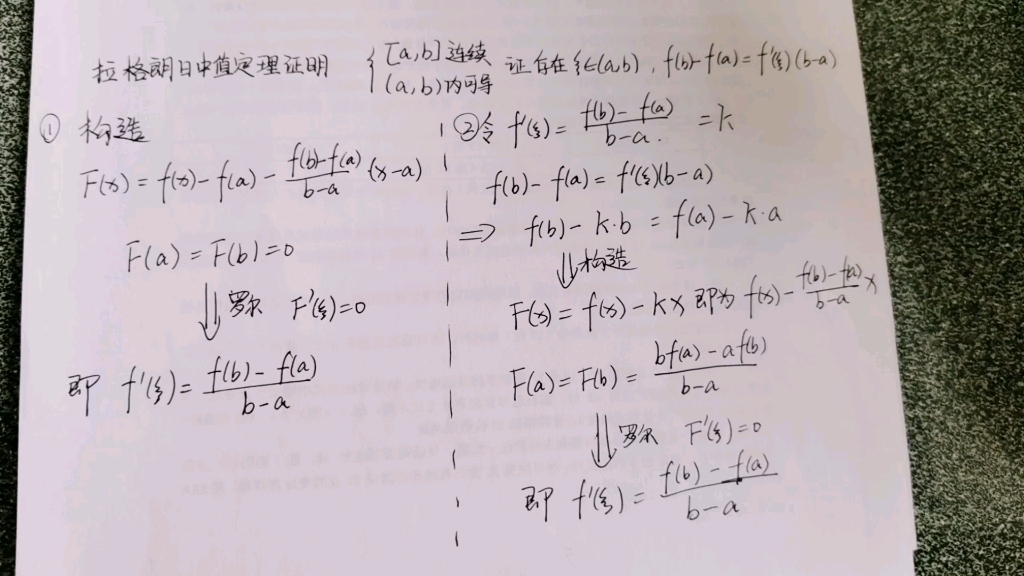 拉格朗日中值定理证明 { [a,b]连续 (a,b)内可导 证存在ξ∈(a,b), f(b)-f(a)=f'(ξ)(b-a)
① 构造
F(x)=f(x)-f(a)-\frac{f(b)-f(a)}{b-a}(x-a)
F(a)=F(b)=0
⇓ 罗尔 F'(ξ)=0
即 f'(ξ)=\frac{f(b)-f(a)}{b-a}
②令 f'(ξ)=\frac{f(b)-f(a)}{b-a}=k
f(b)-f(a)=f'(ξ)(b-a)
⇒ f(b)-k·b=f(a)-k·a
⇓构造
F(x)=f(x)-kx 即为 f(x)-\frac{f(b)-f(a)}{b-a}x
F(a)=F(b)=\frac{bf(a)-af(b)}{b-a}
⇓ 罗尔 F'(ξ)=0
即 f'(ξ)=\frac{f(b)-f(a)}{b-a}